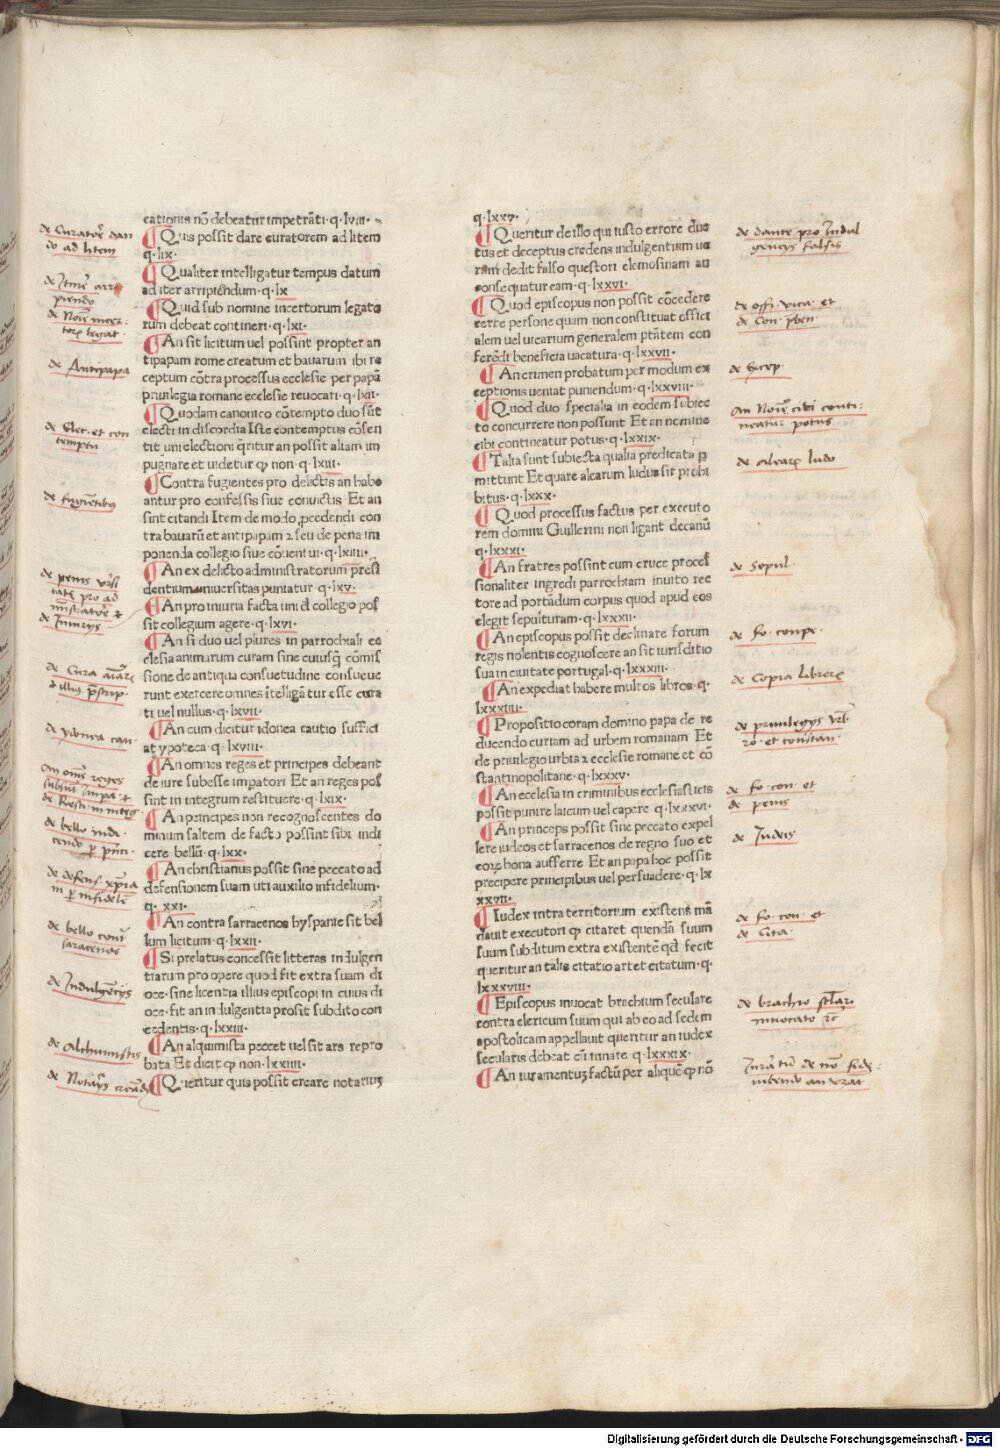 cationis nō debeatur impetrāti·q·lviii·
¶ Quis possit dare curatorem ad litem
q·lix·
¶ Qualiter intelligatur tempus datum
ad iter arripiēndum·q·lx
¶ Quid sub nomine incertorum legato
rum debeat contineri·q·lxi·
¶ An sit licitum uel possint propter an
tipapam rome creatum et bauarum ibi re
ceptum cōtra processus ecclesie per papā
priuilegia romane ecclesie reuocari·q·lxii·
¶ Quodam canonico cōtempto duo sūt
electi in discordia Iste contemptus cōsen
tit uni electioni q̄ritur an possit aliam im
pugnare et uidetur ꝙ non·q·lxiii·
¶ Contra fugientes pro delictis an habe
antur pro confessis siue conuictis Et an
sint citandi Item de modo ꝓcedendi con
tra bauarū et antipapam ⁊ seu de pena im
ponenda collegio siue cōuentui·q·lxiiii·
¶ An ex delicto administratorum presi
dentium uniuersitas puniatur·q·lxv·
¶ An pro iniuria facta uni d collegio pos
sit collegium agere·q·lxvi·
¶ An si duo uel plures in parrochiali ec
clesia animarum curam sine cuiusq̄ cōmis
sione de antiqua consuetudine consueue
runt exercere omnes ītelligātur esse cura
ti uel nullus·q·lxvii·
¶ An cum dicitur idonea cautio suffici
at ypoteca·q·lxviii·
¶ An omnes reges et principes debeant
de iure subesse impatori Et an reges pos
sint in integrum restituere·q·lxix·
¶ An principes non recognoscentes do
minum saltem de facto possint sibi indi
cere bellū·q·lxx·
¶ An christianus possit sine peccato ad
defensionem suam uti auxilio infidelium·
q· xxi·
¶ An contra sarracenos hyspanie sit bel
lum licitum·q·lxxii·
¶ Si prelatus concessit litteras indulgen
tiarum pro opere quod fit extra suam di
oce·sine licentia illius episcopi in cuius di
oce·fit an indulgentia prosit subdito con
cedentis·q·lxxiii·
¶ An alquimista peccet uel sit ars repro
bata Et dicit ꝙ non·lxxiiii·
¶ Queritur quis possit creare notarius
q·lxxv·
¶ Queritur de illo qui iusto errore duc
tus et deceptus credens indulgentism ue
ram dedit falso questori elemosinam an
consequatur eam·q·lxxvi·
¶ Quod episcopus non possit cōcedere
certe persone quam non constituat offici
alem uel uicarium generalem ptātem con
ferēdi beneficia uacatura·q·lxxvii·
¶ An crimen probatum per modum ex
ceptionis ueniat puniendum·q·lxxviii·
¶ Quod duo specialia in eodem subiec
to concurrere non possunt Et an nomine
cibi contineatur potus·q·lxxix·
¶ Talia sunt subiecta qualia predicata ꝑ
mittunt Et quare alearum ludus sit prohi
bitus·q·lxxx·
¶ Quod processus factus per executo
rem domini Guillermi non ligant decanū
q·lxxxi·
¶ An fratres possint cum cruce proces
sionaliter ingredi parrochiam inuito rec
tore ad portādum corpus quod apud eos
elegit sepulturam·q·lxxxii·
¶ An episcopus possit declinare forum
regis nolentis cognoscere an sit iurisditio
sua in ciuitate portugal·q·lxxxiii·
¶ An expediat habere multos libros·q·
lxxxiiii·
¶ Propositio coram domino papa de re
ducendo curiam ad urbem romanam Et
de priuilegio urbis ⁊ ecclesie romane et cō
stantinopolitane·q·lxxxv·
¶ An ecclesia in criminibus ecclesiasticis
possit punire laicum uel capere q·lxxxvi·
¶ An princeps possit sine peccato expel
lere iudeos et sarracenos de regno suo et
eoꝝ bona aufferre Et an papa hoc possit
precipere principibus uel persuadere·q·lx
xxvii·
¶ Iudex intra territorium existens mā
dauit executori ꝙ citaret quendā suum
suum subditum extra existentē qd fecit
queritur an talis citatio artet citatum·q·
lxxxviii·
¶ Episcopus inuocat brachium seculare
contra clericum suum qui ab eo ad sedem
apostolicam appellauit queritur an iudex
secularis debeat eū iuuare q·lxxxix·
¶ An iuramentuꝫ factū per aliquē ꝙ nō
de Curator̄ dan
do ad litem
de Itiner̄ arri
piendo
de Antipapa
de Elec̄· et con
temptu
de fugiētibus
de Iniurijs
de ydonea cau·
de bello indi
de bello contr̄
saracenos
de Indulgēcijs
de Alchimistis
de Notarijs creādis
de dante pro Indul
gencijs falsis
de offi· vica· et
an Noīe cibi conti:
neatur potus
de alearꝝ ludo
de Sepul·
de fo· compe·
de Copia librorꝝ
de priuilegijs vrb·
ro· et constan·
de fo· con· et
de penis
de Iudeis
de fo· con· et
de Cita·
de brachio sclari
inuocato
Digitalisierung gefördert durch die Deutsche Forschungsgemeinschaft - DFG